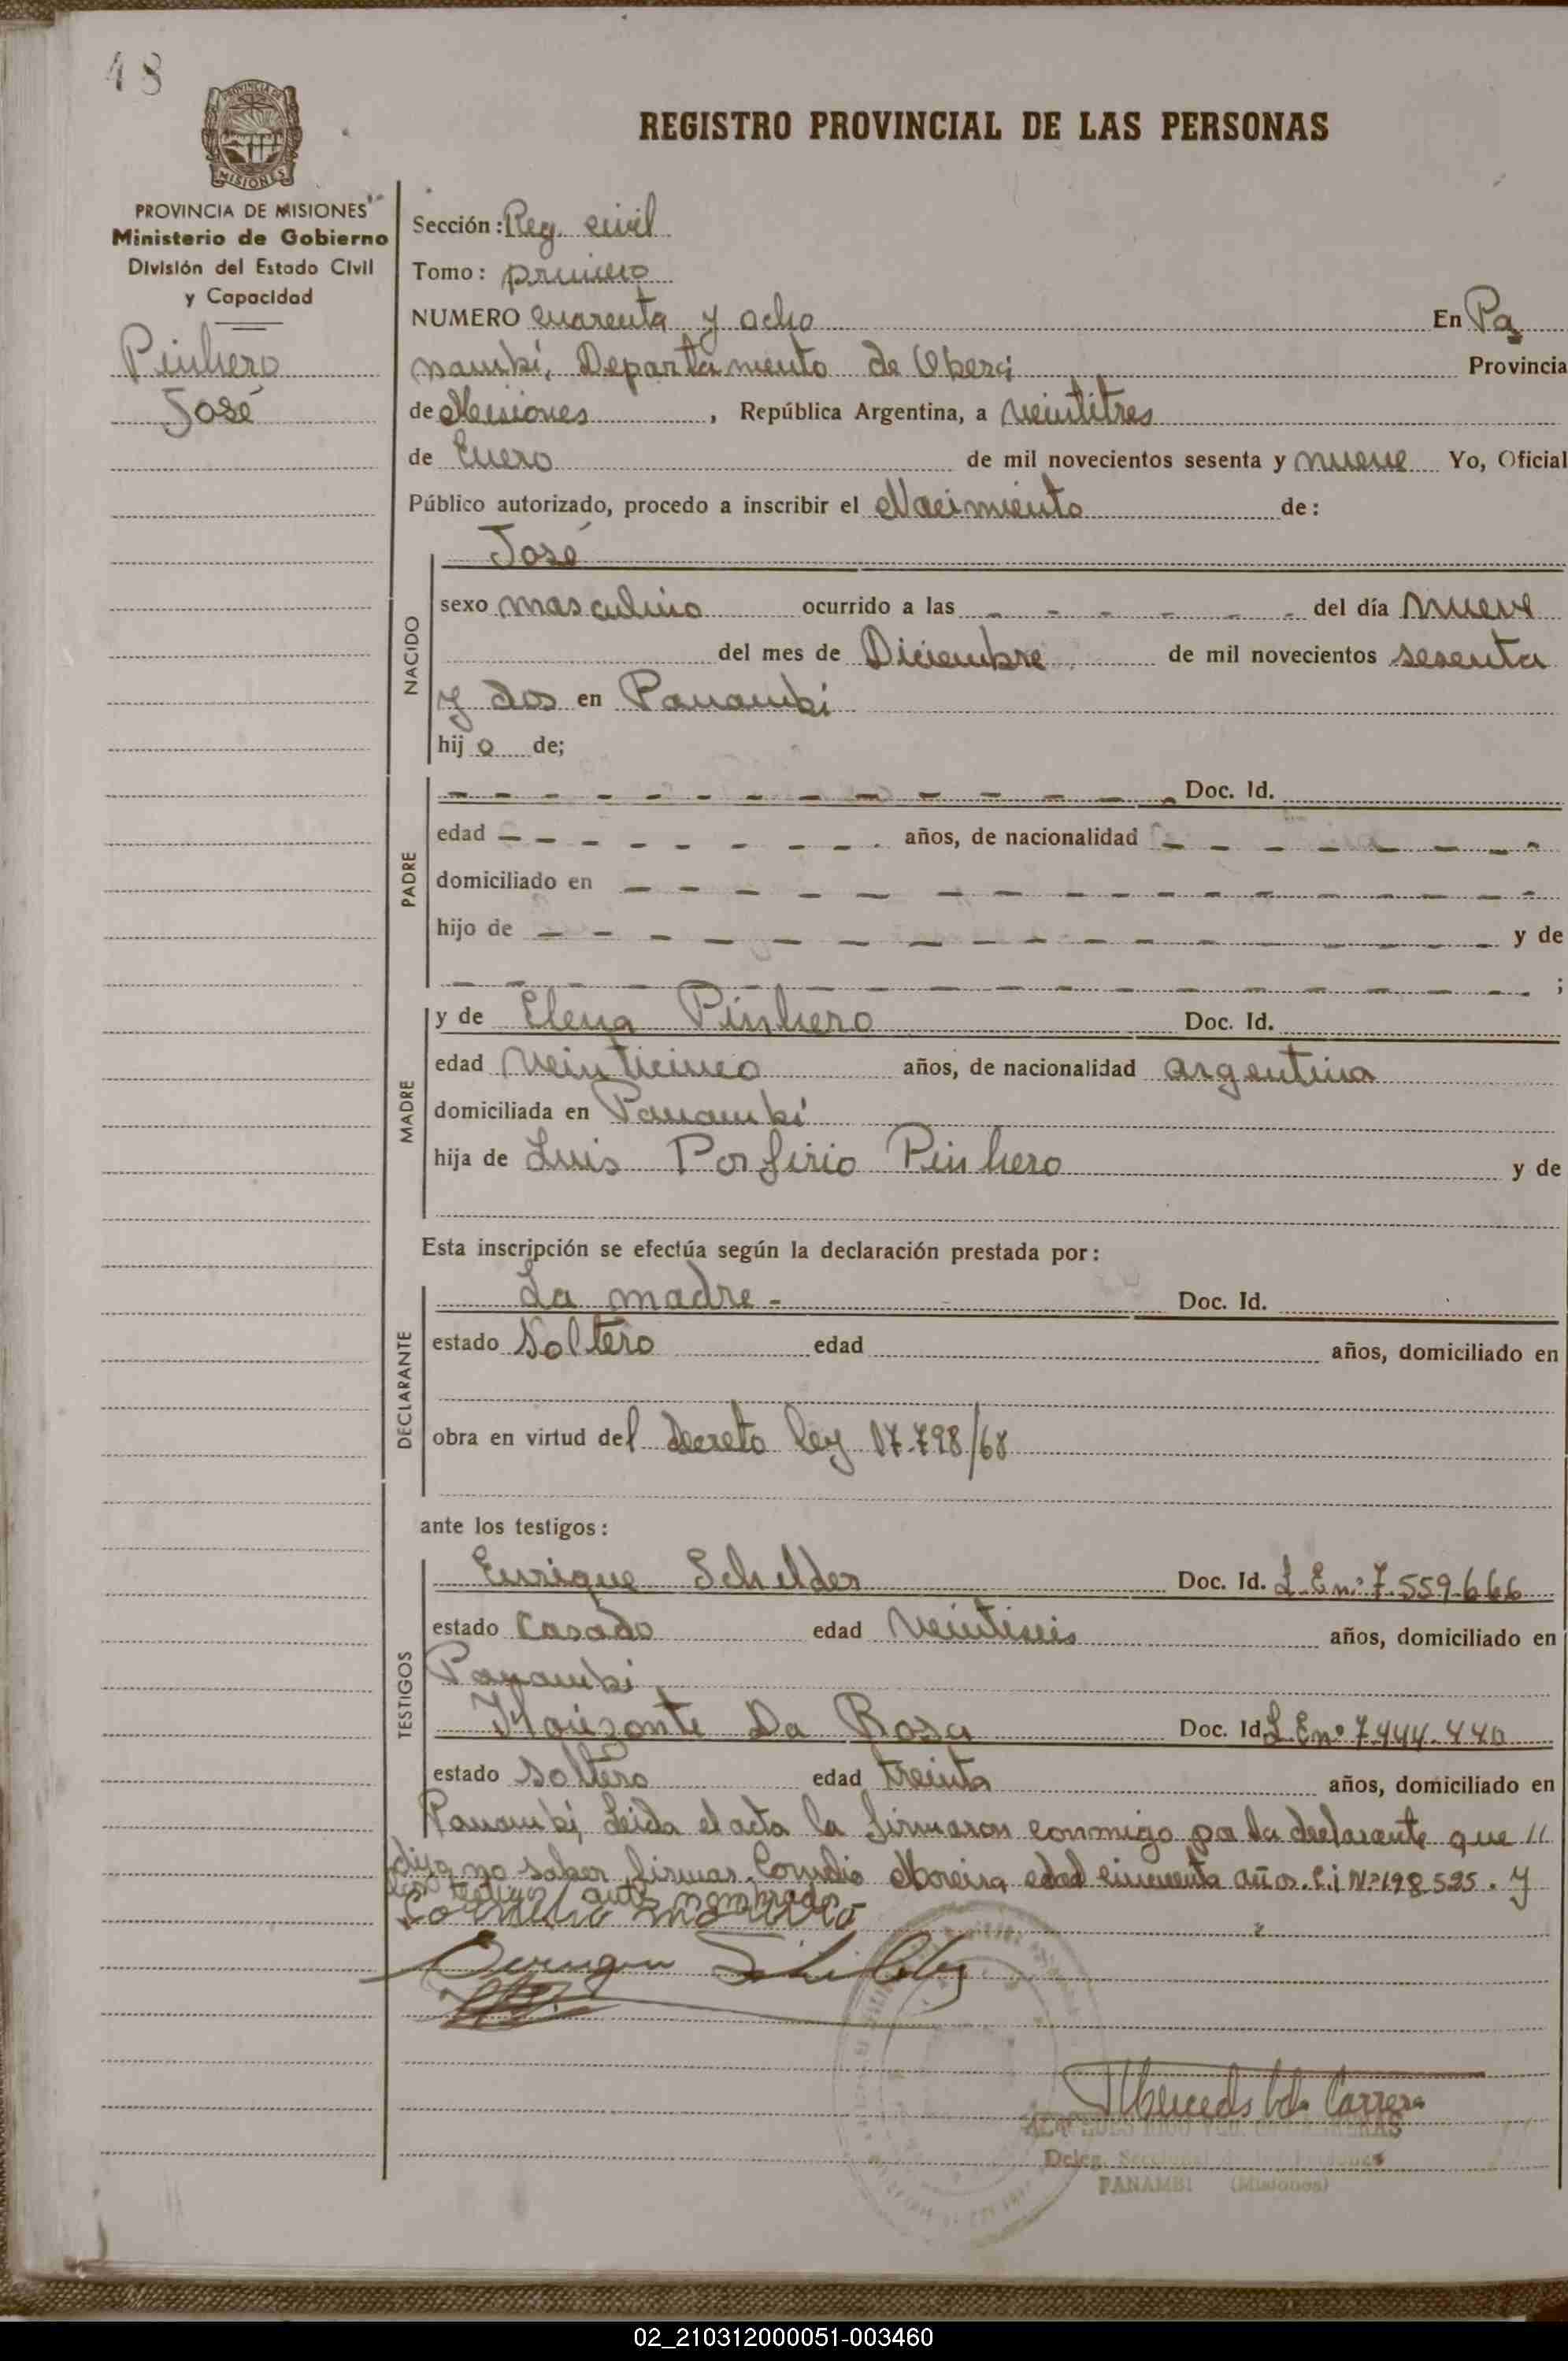 48
PROVINCIA DE MISIONES
Ministerio de Gobierno
División del Estado Civil
y Capacidad
Pinhero
José
REGISTRO PROVINCIAL DE LAS PERSONAS
Sección: Reg. civil
Tomo: primero
NUMERO cuarenta y ocho En Pa
nambí, Departamento de Oberá Provincia
de Misiones, República Argentina, a veintitres
de Enero de mil novecientos sesenta y nueve Yo, Oficial
Público autorizado, procedo a inscribir el Nacimiento de:
José
NACIDO
sexo masculino ocurrido a las - - - - - - del día nueve
del mes de Diciembre de mil novecientos sesenta
y dos en Panambí
hijo de;
PADRE
- - - - - - - - - - - - - Doc. Id.
edad - - - - - - - - años, de nacionalidad - - - - - - - -
domiciliado en - - - - - - - - - - - - - - -
hijo de - - - - - - - - - - - - - - - - y de
- - - - - - - - - - - - - - - - - - ;
MADRE
y de Elena Pinhero Doc. Id.
edad veinticinco años, de nacionalidad argentina
domiciliada en Panambí
hija de Luis Porfirio Pinhero y de
Esta inscripción se efectúa según la declaración prestada por:
DECLARANTE
La madre - Doc. Id.
estado Soltero edad años, domiciliado en
obra en virtud del decreto ley 17.798/68
ante los testigos:
TESTIGOS
Enrique Schelder Doc. Id. L.E nº 7.559.666
estado Casado edad veintiseis años, domiciliado en
Panambí
Horizonte Da Rosa Doc. Id. L.E nº 7.444.440
estado soltero edad treinta años, domiciliado en
Panambí, Leida el acta la firmaron conmigo por la declarante que //
dijo no saber firmar. Cornelio Moreira edad cincuenta años. C.i Nº 198.525. y
los testigos antes nombrados
Cornelio Moreira
Mercedes de Carrera
PANAMBI (Misiones)
02_210312000051-003460